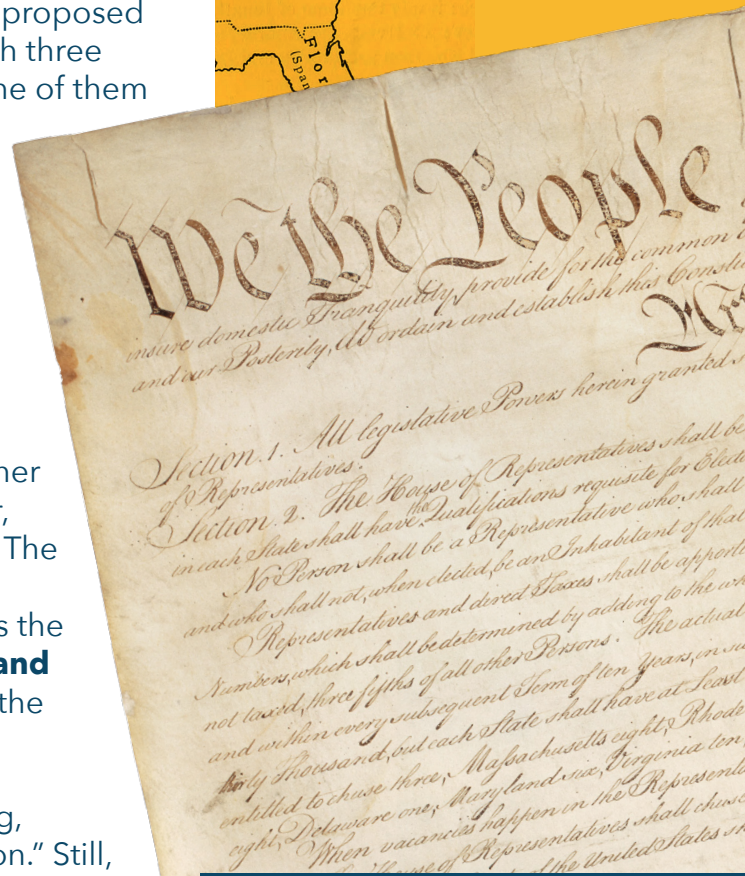 proposed
h three
ne of them
Flor
(Span
We the People
insure domestic Tranquility, provide for the common
and our Posterity, do ordain and establish this Constit
Section. 1. All legislative Powers herein granted s
of Representatives.
Section. 2. The House of Representatives shall be
in each State shall have the Qualifications requisite for Elect
No Person shall be a Representative who shall
and who shall not, when elected, be an Inhabitant of that
Representatives and direct Taxes shall be apporti
Numbers, which shall be determined by adding to the wh
not taxed, three fifths of all other Persons. The actual
and within every subsequent Term of ten Years, in su
thirty Thousand, but each State shall have at Least
entitled to chuse three, Massachusetts eight, Rhode
eight, Delaware one, Maryland six, Virginia ten,
When vacancies happen in the Representa
House of Representatives shall chuse
of the United States sh
ner
r,
The
s the
and
the
g,
on.” Still,